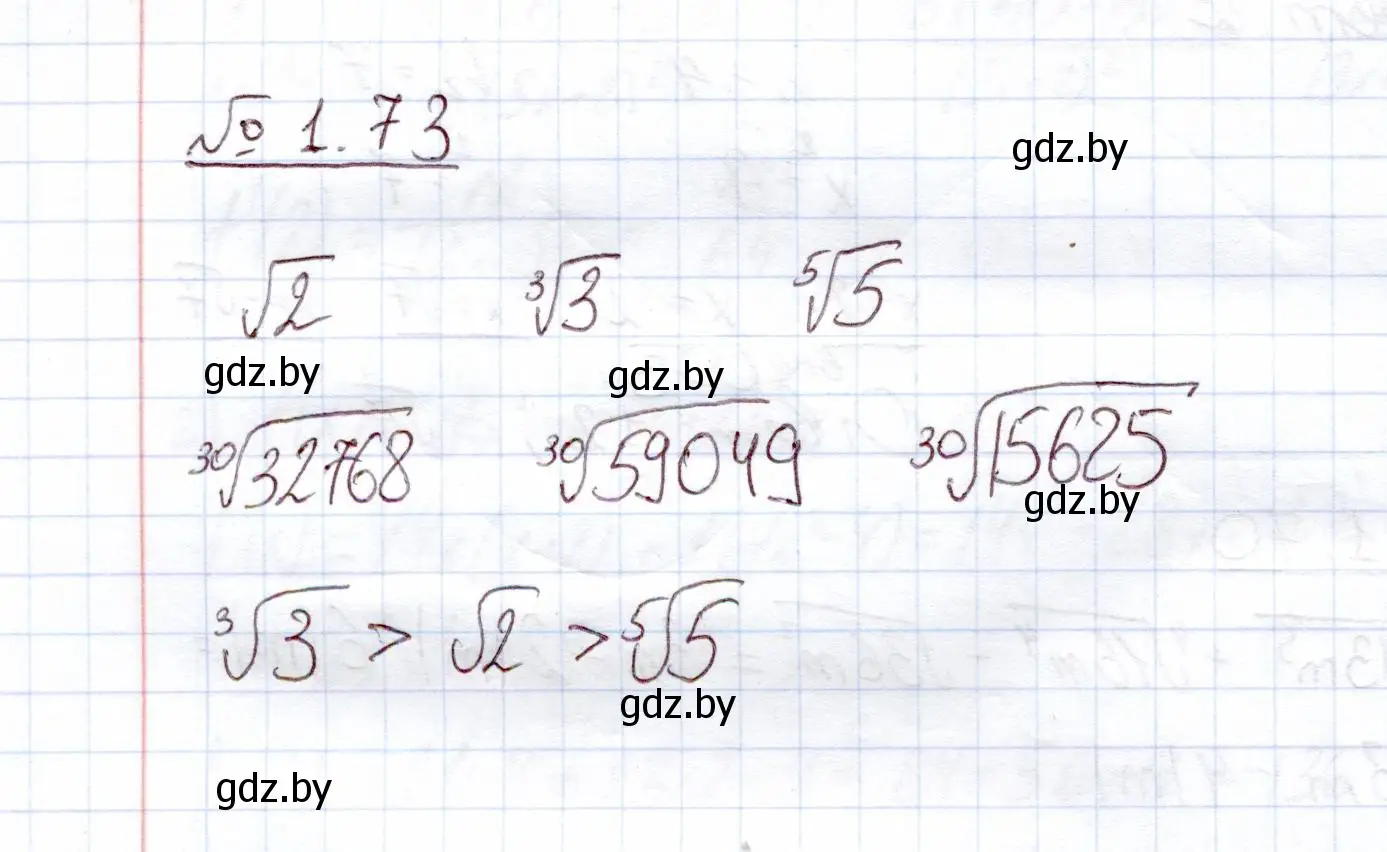 № 1.73
gdz.by
√2 ∛3 ⁵√5
gdz.by gdz.by
³⁰√32768 ³⁰√59049 ³⁰√15625
gdz.by
∛3 > √2 > ⁵√5
gdz.by
gdz.by